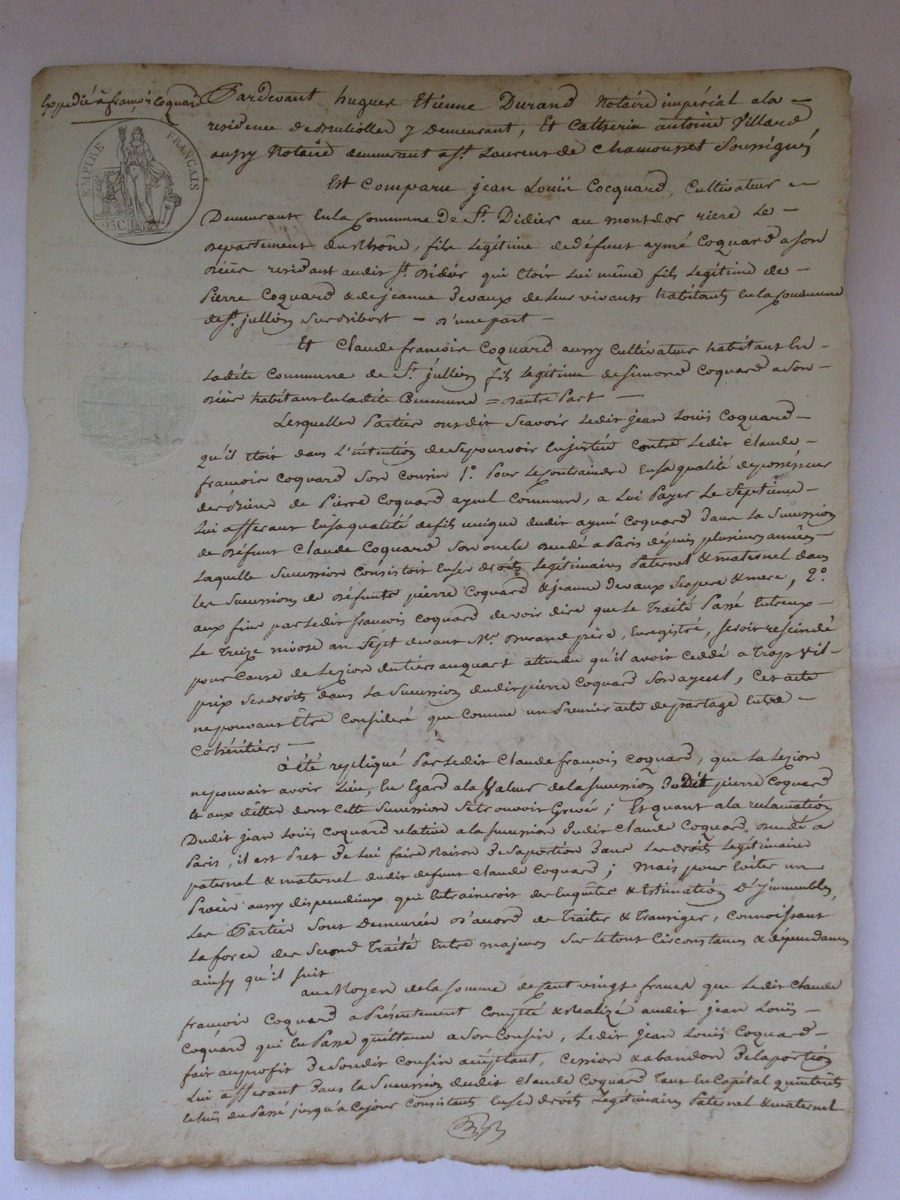 Expedié à françois Coquard
EMPIRE FRANÇAIS
25 C.
Pardevant hugues Etienne Durand Notaire impérial a la
residence de Brulliolles y Demeurant, Et Catherin antoine Villard
aussy Notaire demeurant a St. Laurens de Chamousset Soussignés
Est Comparu jean Louis Cocquard, Cultivateur
Demeurant En la Commune de St. Didier au mont dor riere Le
Departement du Rhône, fils Legitime de défunt aymé Coquard a son
décès residant audit St. Didier qui Etoit Lui même fils Legitime de
Pierre Coquard & de jeanne Devaux de Leur vivant habitants En la Commune
de St. jullien Sur Bibost - D'une part -
Et Claude françois Coquard aussy Cultivateur habitant En
Ladite Commune de St. jullien fils Legitime de Simond Coquard a Son
Décès habitant En Ladite Commune = Dautre Part -
Lesquelles Parties ont dit Scavoir Ledit jean Louis Coquard
qu'il Etoit dans L'intention de Se pourvoir En justice Contre Ledit Claude
françois Coquard Son Cousin 1o. Pour Le Contraindre En Sa qualité de possesseur
des biens de Pierre Coquard ayeul Commun, a Lui Payer Le Septieme
Lui afferant En sa qualité de fils unique dudit aymé Coquard dans La Succession
de Défunt Claude Coquard Son oncle Décédé a Paris depuis plusieurs années
Laquelle Succession Consistoit En Ses droits Legitimaires Paternel & maternel dans
Les Successions de Défunts pierre Coquard & jeanne Devaux Ses pere & mere, 2o.
aux fins par Ledit françois Coquard de voir dire que Le Traité Passé Entreux
Le Treize nivose an Sept devant Me. Durand père, Enregistré, Seroit rescindé
pour Cause de Lezion du tiers au quart attendu qu'il avoit Ceddé a Trop vil
prix Ses droits dans La Succession dudit pierre Coquard Son ayeul, Cet acte
ne pouvant Être Consideré que Comme un Premier acte de partage Entre
Cohéritiers -
à été repliqué Par Ledit Claude françois Coquard, que La Lezion
ne pouvait avoir Lieu, Eu Egard a la Valeur de la Succession Dudit pierre Coquard
& aux dettes dont Cette Succession Se trouvoit Grevée; Et quant a la reclamation
Dudit jean Louis Coquard relative a la Succession dudit Claude Coquard Décédé a
Paris, il est Prest de Lui faire Raison de Sa portion dans Les droits Legitimaires
paternel & maternel dudit defunt Claude Coquard; Mais pour Eviter un
Procès aussy dispendieux qui Entraineroit des Enquêtes & Estimation D'Immeubles,
Les Parties Sont Demeurées D'accord de Traiter & Transiger, Connoissant
La force des Second Traité Entre majeurs Sur Le tout Circonstances & dépendances
ainsy qu'il Suit
au Moyen de la Somme de Cent vingt francs que Ledit Claude
françois Coquard a Présentement Compté & Realizé audit jean Louis
Coquard qui En Passe quittance a Son Cousin, Ledit jean Louis Coquard
fait au profit de Son dit Cousin acceptant, Cession & abandon De la portion
Lui afferant Dans La Succession dudit Claude Coquard Tant En Capital qu'intérêts
Echus du Passé jusqu'a Ce jour Consistant En Ses droits Legitimaires Paternel & maternel